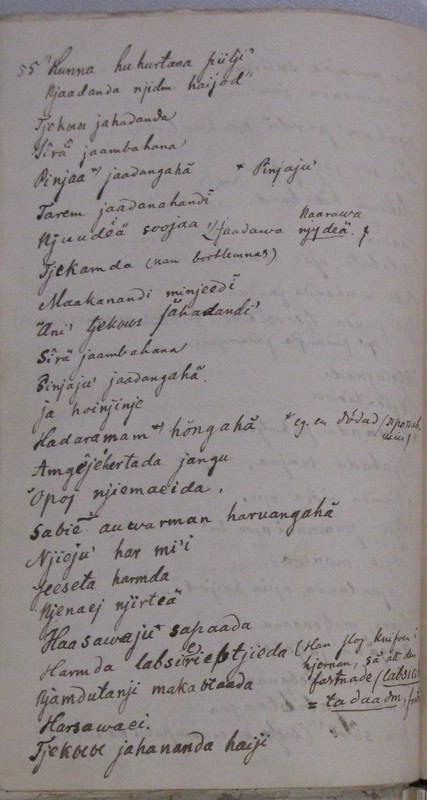 55 "Hunna huhurtana piilji"
Njaadanda njidm haijod"
Tjekoee jahadanda
Sîrä jaambahana
Pinjaa *) jaadangahä * Pinjaju'
Tarem jaadanahandi
Njuudëä soojaa (jaadawa Naarawa njydeä.
Tjekamda (kan bortlemnas)
Maakanandi minjeedi
Äni' tjekoee jähadandi'
Sîrä jaambahana
Pinjaju' jaadangahä.
ja hoinjinje
Hadaramam *) hôngahä * eg. en dödad
Amgêjêhertada jangu
Opoj njiemaeida.
Sabiê auwarman haruangahä
Njieju' har mi'i
Jeeseta harmda
Njenaej njirteä
Haasawaju sapaada
Harmda labsiêieptjieda (Han slog knifven i hjernan, så att den fastnade / labsie
Njamdutanji makabtaada = tadaadm,
Harsawaei.
Tjekoee jahananda haiji